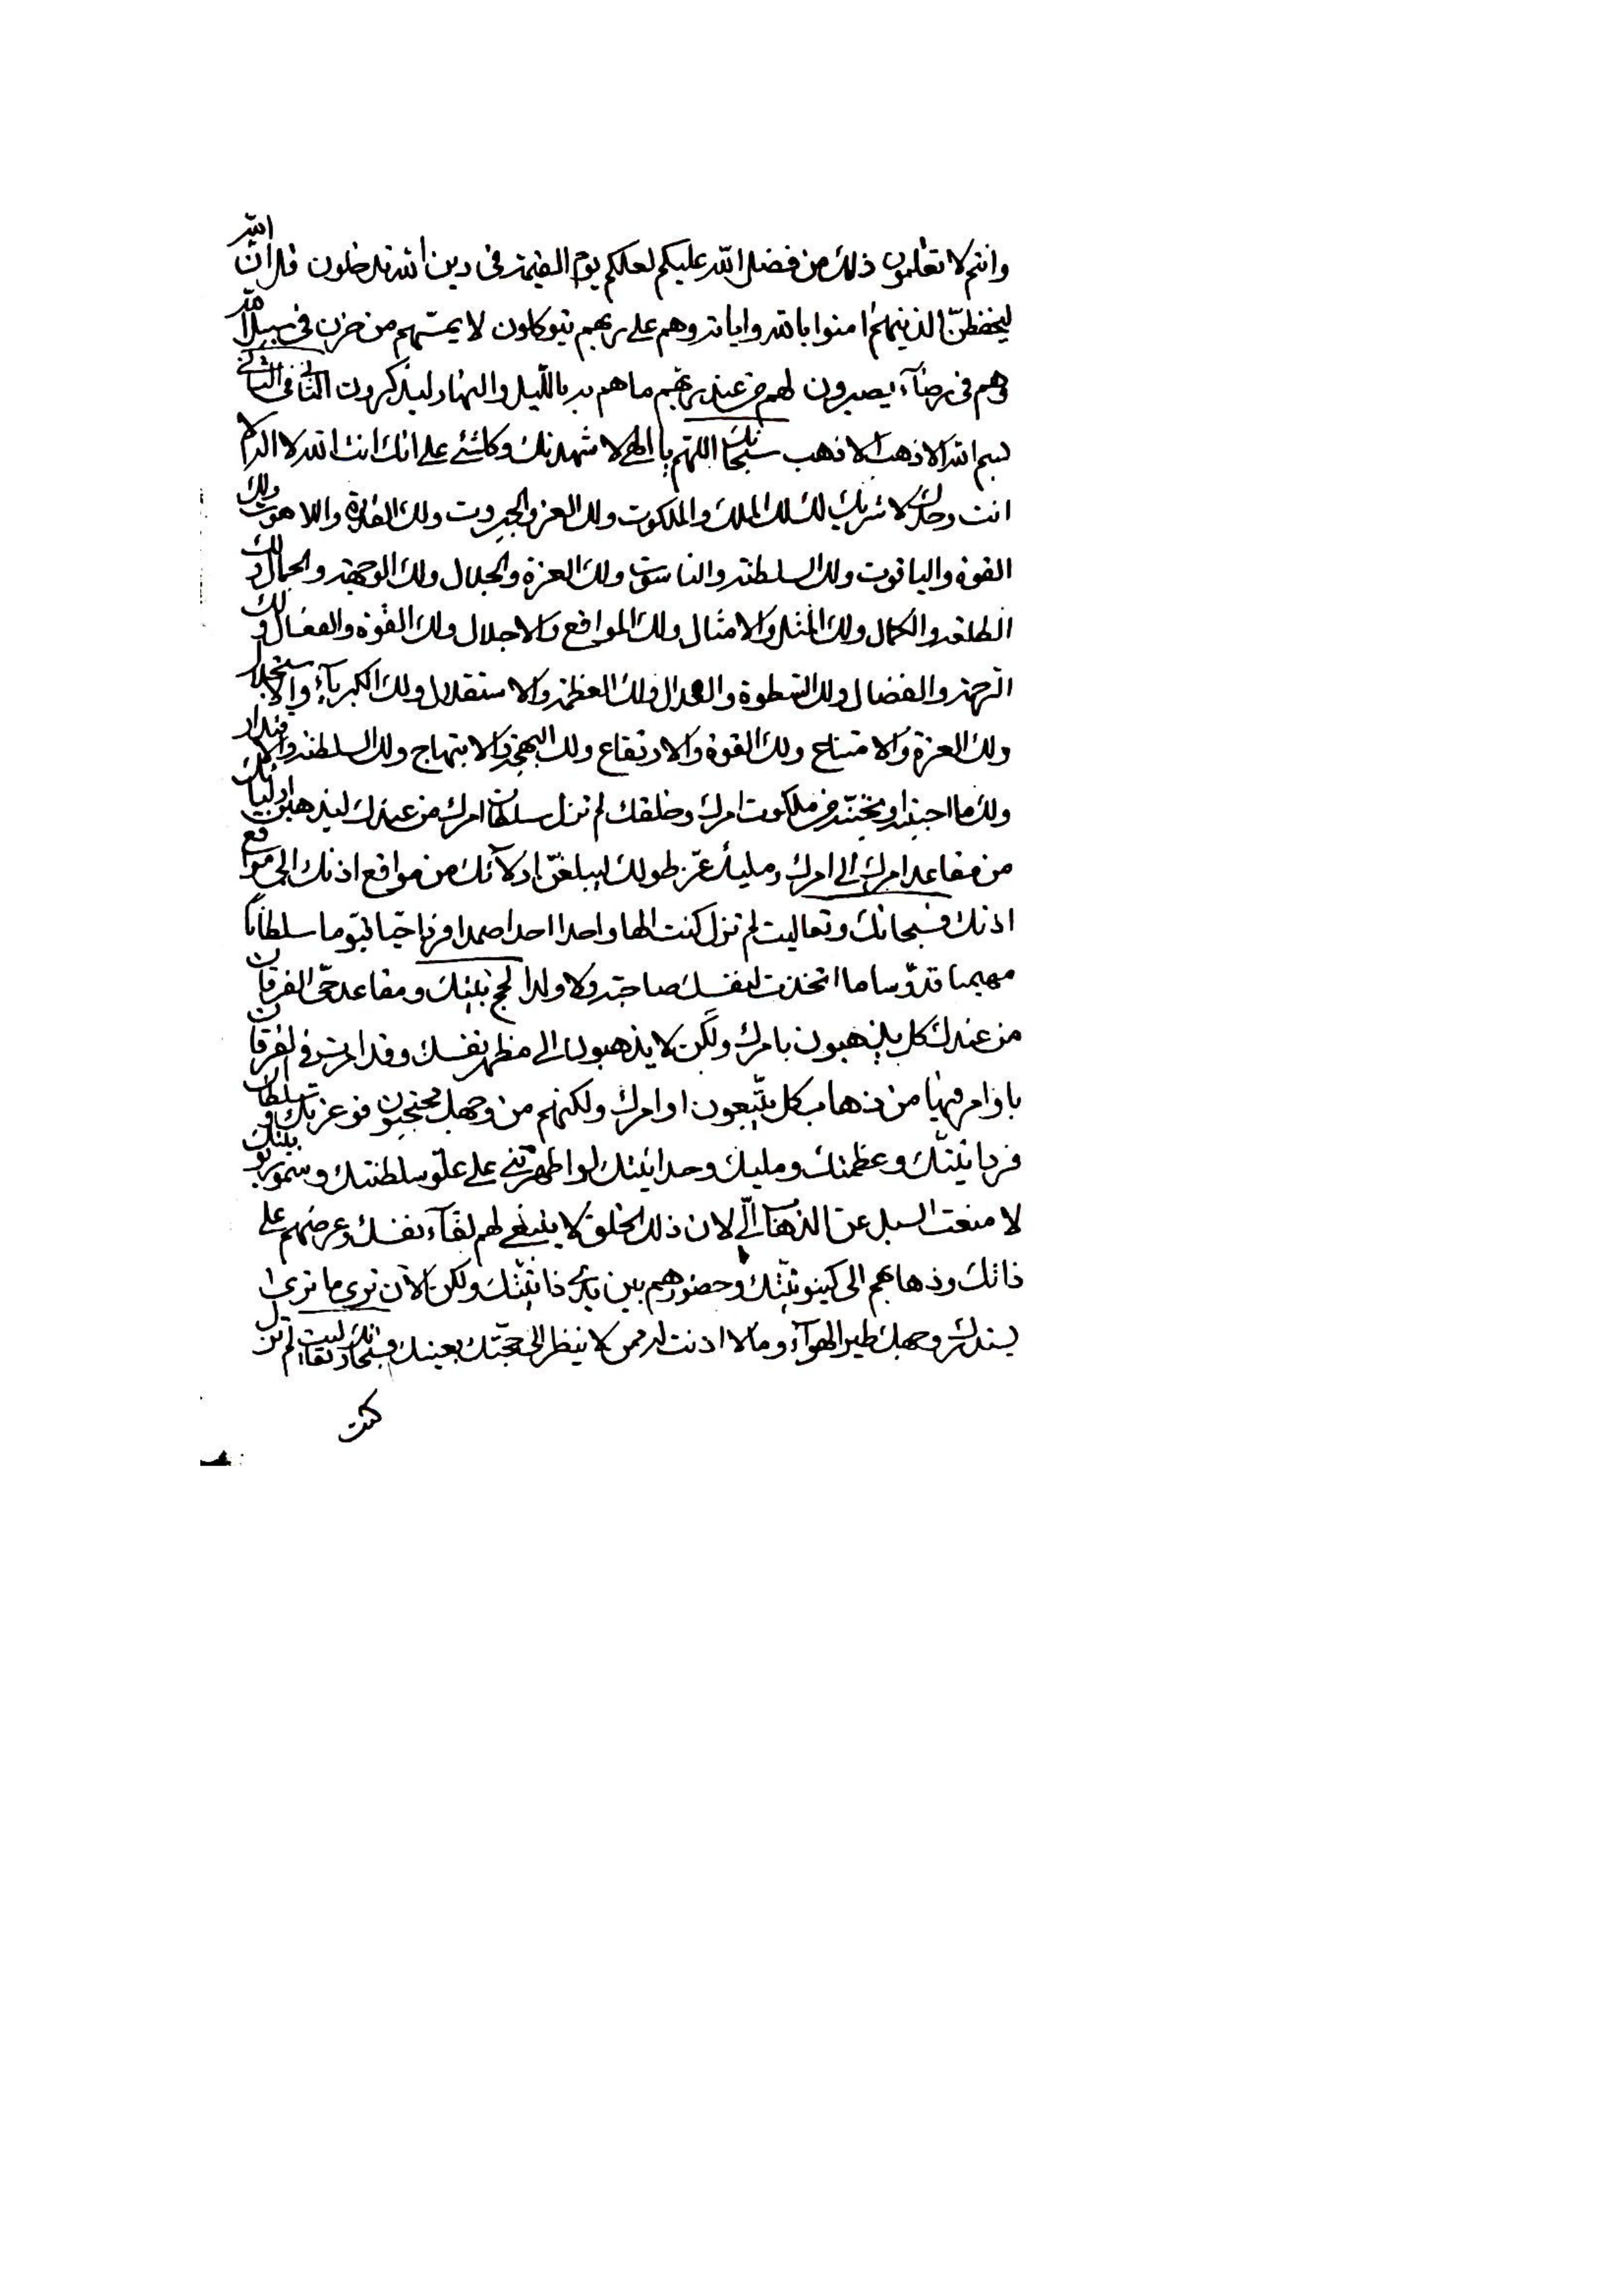 وانتم لا تعلمون ذلك من فضل الله عليكم لعلكم يوم القيمة في دين الله تدخلون قل ان الله
ليحفظن الذينهم امنوا بالله واياته وهم على ربهم يتوكلون لا يمسهم من حزن في سبيل الله
وهم في رضآء يصبرون لهم من عند ربهم ما هم به بالليل والنهار ليذكرون الثاني في الثاني
بسم الله الاذهب الاذهب سبحانك اللهم يا الهي لاشهدنك وكلشئ على انك انت الله لا اله الا
انت وحدك لا شريك لك لك الملك والملكوت ولك العز والجبروت ولك القدرة واللاهوت ولك
القوة والياقوت ولك السلطنة والناسوت ولك العزة والجلال ولك الوجهة والجمال ولك
الطلعة والكمال ولك المثل والامثال ولك المواقع والاجلال ولك القوة والفعال ولك
الرحمة والفضال ولك السطوة والعدال ولك العظمة والاستقلال ولك الكبريآء والاستجلال
ولك العزة والامتناع ولك القوة والارتفاع ولك البهجة والابتهاج ولك السلطنة والاقتدار
ولك ما احببته او تحبنه من ملكوت امرك وخلقك لم تزل سلطان امرك من عندك ليذهبن اوليائك
من مقاعد امرك الى امرك ومليك عز طولك ليبلغن ادلآئك من مواقع اذنك الى مواقع
اذنك فسبحانك وتعاليت لم تزل كنت الها واحدا احدا صمدا فردا حيا قيوما سلطانا
مهيمنا قدوسا ما اتخذت لنفسك صاحبة ولا ولدا لحج بيتك ومقاعد حي الفرقان
من عندك كل يذهبون بامرك ولكن لا يذهبون الى مظهر نفسك وقد امرت في الفرقان
باوامر فيها من ذهاب كل يتبعون اوامرك ولكنهم من وجهك محتجبون فوعزتك وسلطان
فردانيتك وعظمتك ومليك وحدانيتك لو اظهرتني على علو سلطنتك وسمو ربوبيتك
لا منعت السبل عن الذهاب الي لان ذلك الخلق لا ينبغي لهم لقآء نفسك وعرضهم على
ذاتك وذهابهم الى كينونيتك وحضورهم بين يدي ذاتيتك ولكن الآن ترى ما ترى
يسندك وجهك طير الهوآء وما لا اذنت له ممن لا ينظر الى حجتك بعينك فسبحانك وتعاليت لم تزل
كنت